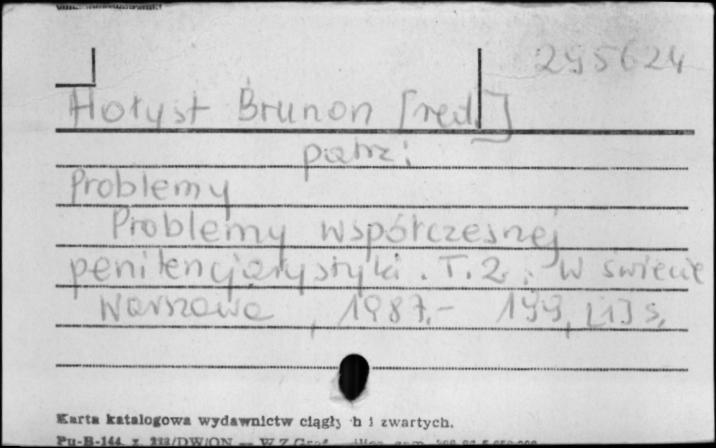 295624
Hołyst Brunon [red.]
patrz:
Problemy
Problemy współczesnej
penitencjarystyki. T. 2. : W świecie
Warszawa, 1987.- 199, [1] s.
Karta katalogowa wydawnictw ciągły h i zwartych.
Pu-B-144, z. 233/DW/ON — W Z Graf